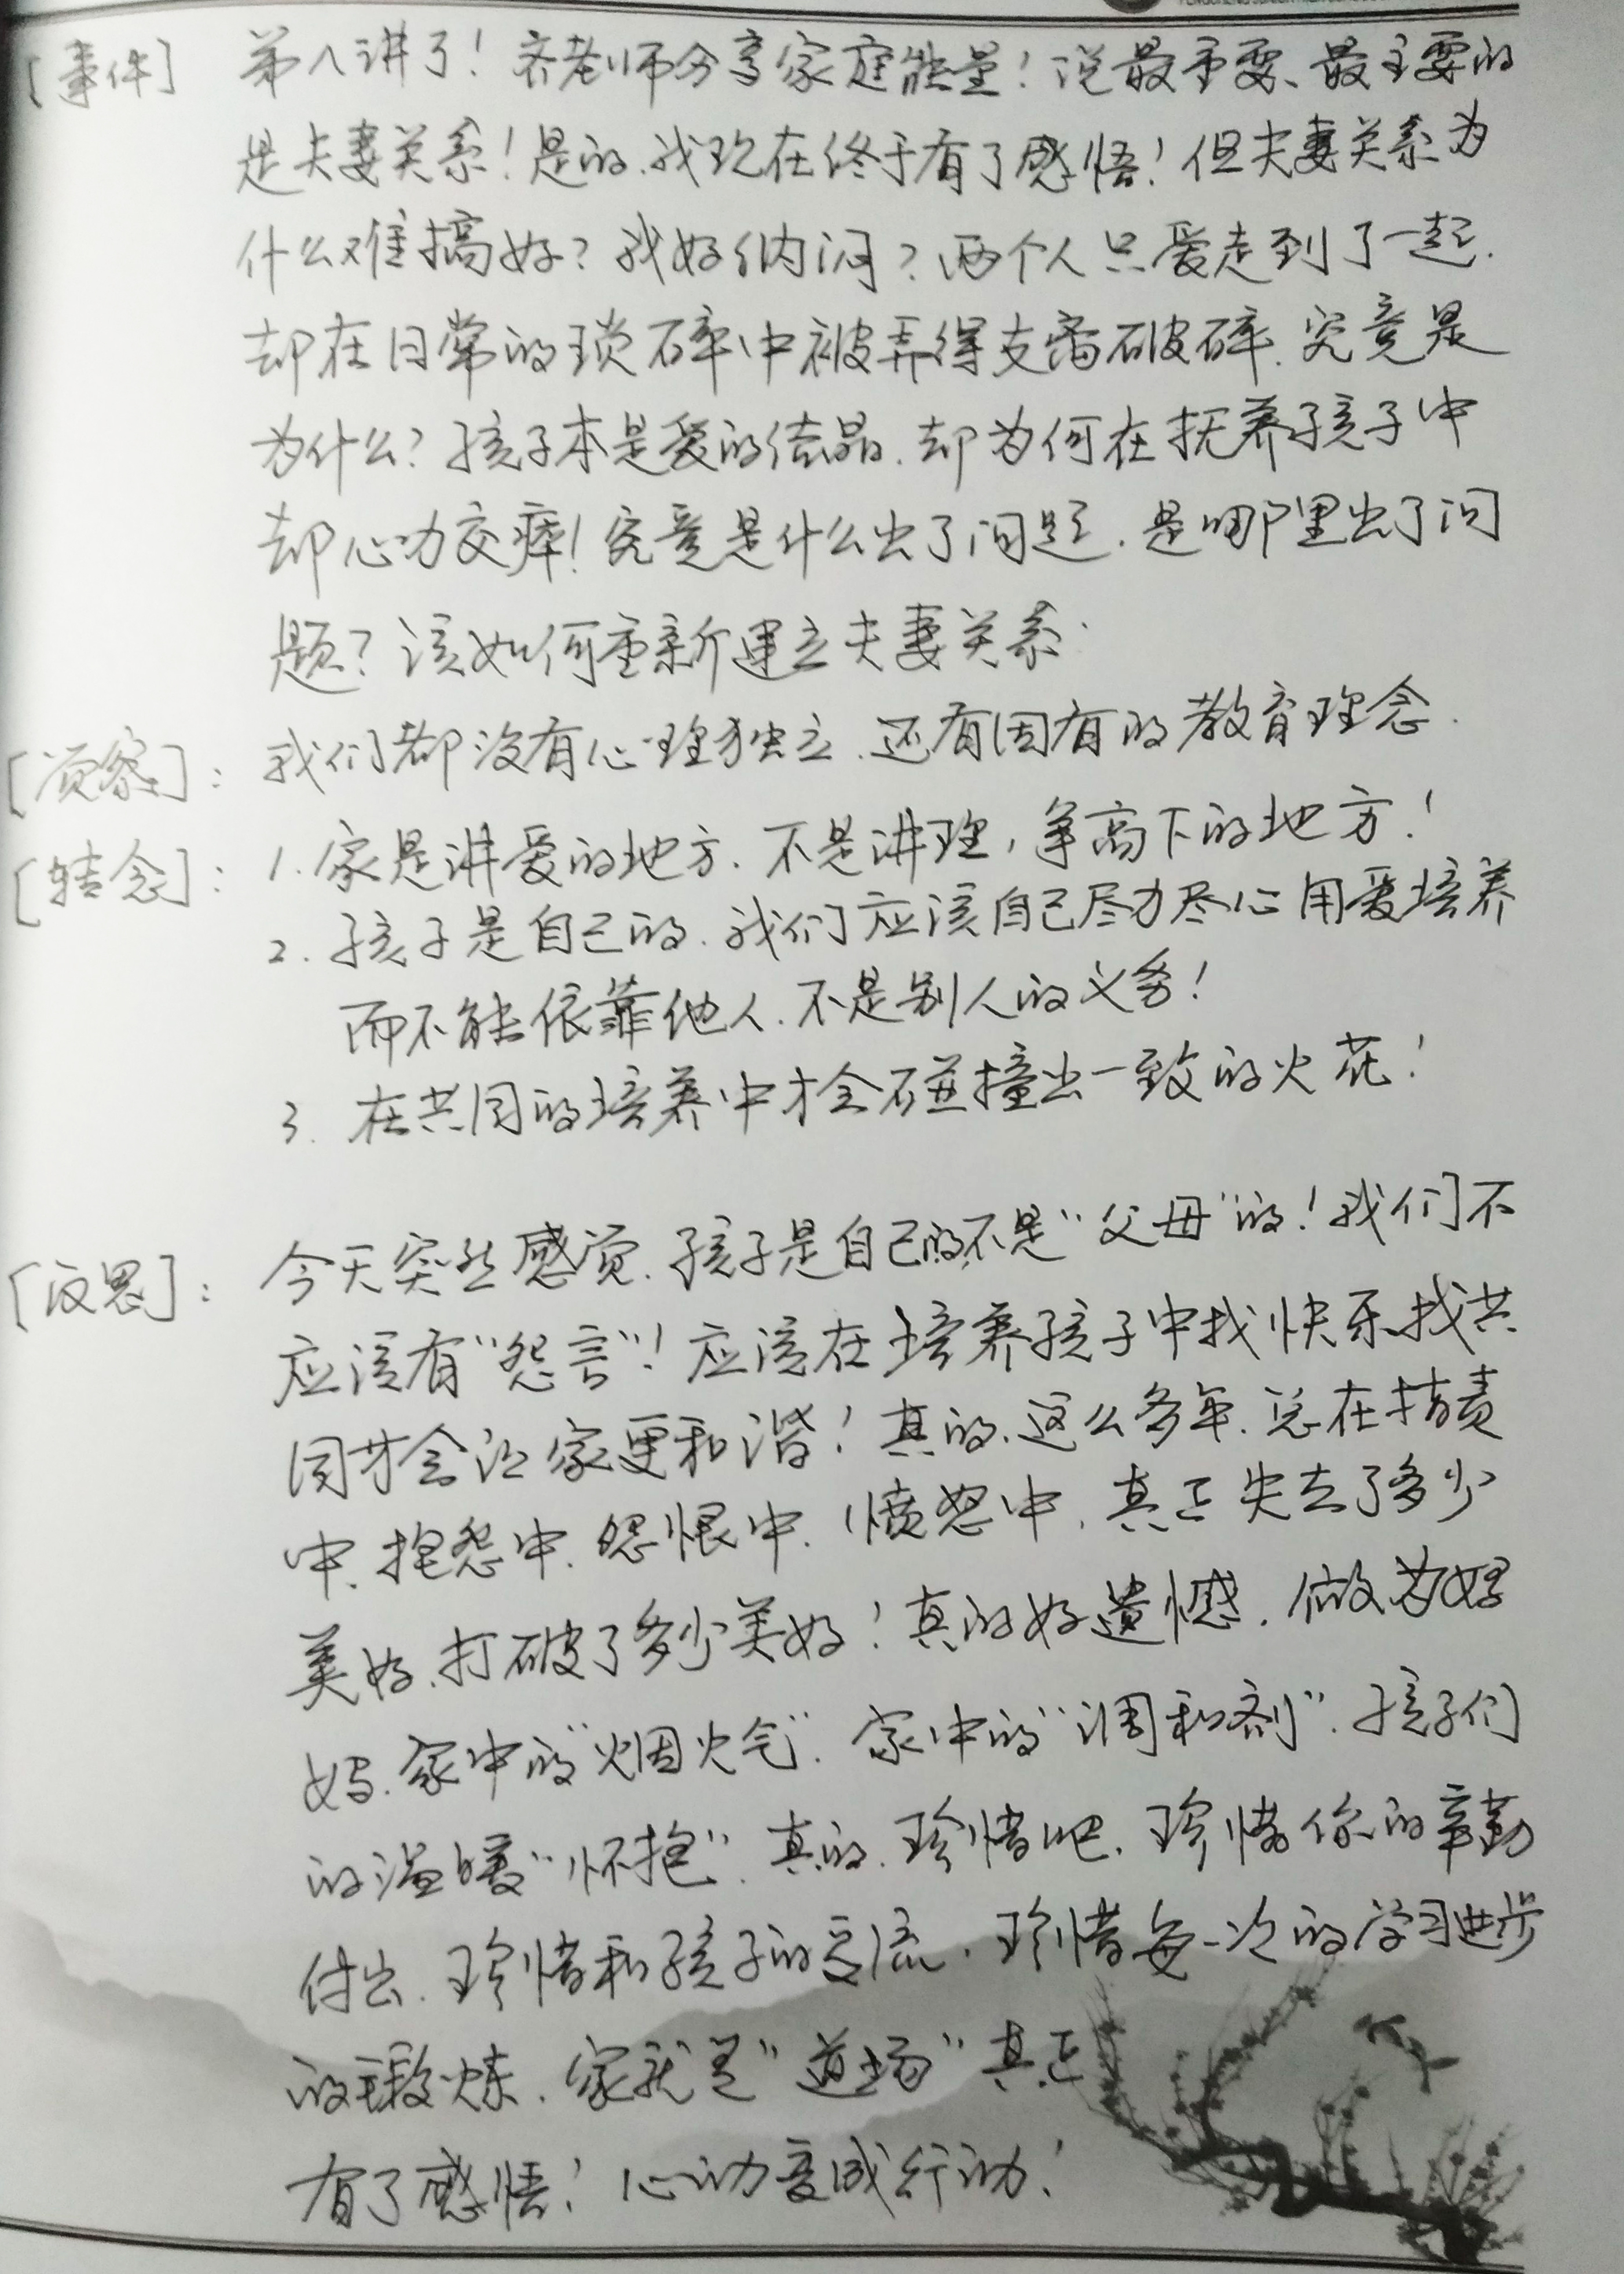 [事件] 第八讲了！齐老师分享家庭能量！说最重要、最主要的
是夫妻关系！是的、我现在终于有了感悟！但夫妻关系为
什么难搞好？我好纳闷？两个人只爱走到了一起.
却在日常的琐碎中被弄得支离破碎.究竟是
为什么？孩子本是爱的结晶.却为何在抚养孩子中
却心力交瘁！究竟是什么出了问题.是哪里出了问
题？该如何重新建立夫妻关系.
[觉察]：我们都没有心理独立.还有固有的教育理念.
[转念]：1.家是讲爱的地方.不是讲理，争高下的地方！
2.孩子是自己的.我们应该自己尽力尽心用爱培养
而不能依靠他人.不是别人的义务！
3.在共同的培养中才会碰撞出一致的火花！
[反思]：今天突然感觉.孩子是自己的不是“父母”的！我们不
应该有“怨言”！应该在培养孩子中找快乐找共
同才会让家更和谐！真的、这么多年.总在指责
中、抱怨中.怨恨中.愤怒中.真正失去了多少
美好、打破了多少美好！真的好遗憾.做为好
妈.家中的“烟火气”.家中的“调和剂”.孩子们
的温暖“怀抱”.真的.珍惜吧.珍惜你的辛勤
付出.珍惜和孩子的交流.珍惜每一次的学习进步
的锻炼.家就是“道场”真正
有了感悟！心动变成行动！